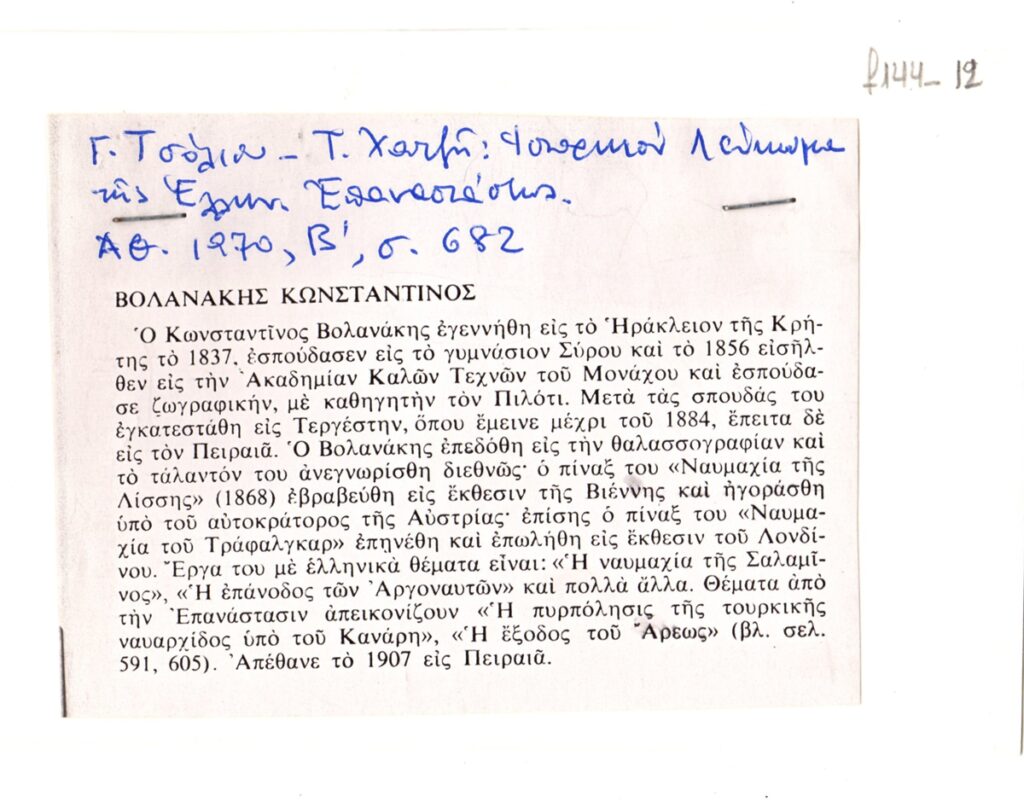 f144- 12
Γ. Τσόλια - Τ. Χατζῆ: Ἱστορικόν Λεύκωμα
τῆς Ἑλλην. Ἐπαναστάσεως.
Ἀθ. 1970, Β', σ. 682
ΒΟΛΑΝΑΚΗΣ ΚΩΝΣΤΑΝΤΙΝΟΣ
Ὁ Κωνσταντῖνος Βολανάκης ἐγεννήθη εἰς τὸ Ἡράκλειον τῆς Κρή-
της τὸ 1837, ἐσπούδασεν εἰς τὸ γυμνάσιον Σύρου καὶ τὸ 1856 εἰσῆλ-
θεν εἰς τὴν Ἀκαδημίαν Καλῶν Τεχνῶν τοῦ Μονάχου καὶ ἐσπούδα-
σε ζωγραφικήν, μὲ καθηγητὴν τὸν Πιλότι. Μετὰ τὰς σπουδάς του
ἐγκατεστάθη εἰς Τεργέστην, ὅπου ἔμεινε μέχρι τοῦ 1884, ἔπειτα δὲ
εἰς τὸν Πειραιᾶ. Ὁ Βολανάκης ἐπεδόθη εἰς τὴν θαλασσογραφίαν καὶ
τὸ τάλαντόν του ἀνεγνωρίσθη διεθνῶς· ὁ πίναξ του «Ναυμαχία τῆς
Λίσσης» (1868) ἐβραβεύθη εἰς ἔκθεσιν τῆς Βιέννης καὶ ἠγοράσθη
ὑπὸ τοῦ αὐτοκράτορος τῆς Αὐστρίας· ἐπίσης ὁ πίναξ του «Ναυμα-
χία τοῦ Τράφαλγκαρ» ἐπηνέθη καὶ ἐπωλήθη εἰς ἔκθεσιν τοῦ Λονδί-
νου. Ἔργα του μὲ ἑλληνικὰ θέματα εἶναι: «Ἡ ναυμαχία τῆς Σαλαμῖ-
νος», «Ἡ ἐπάνοδος τῶν Ἀργοναυτῶν» καὶ πολλὰ ἄλλα. Θέματα ἀπὸ
τὴν Ἐπανάστασιν ἀπεικονίζουν «Ἡ πυρπόλησις τῆς τουρκικῆς
ναυαρχίδος ὑπὸ τοῦ Κανάρη», «Ἡ ἔξοδος τοῦ Ἄρεως» (βλ. σελ.
591, 605). Ἀπέθανε τὸ 1907 εἰς Πειραιᾶ.